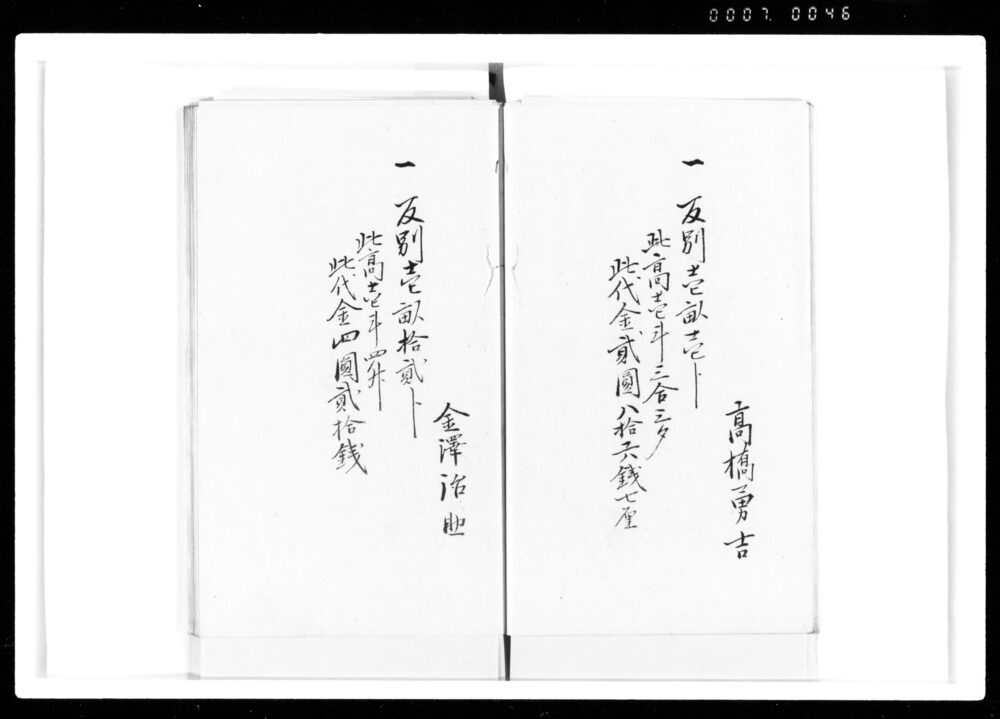 0007. 0046
高橋勇吉
一 反別壱畝壱卜
此高壱斗三合三夕
此代金貳圓八拾六銭七厘
金澤治
一 反別壱畝拾貳卜
此高壱斗四升
此代金四圓貳拾銭